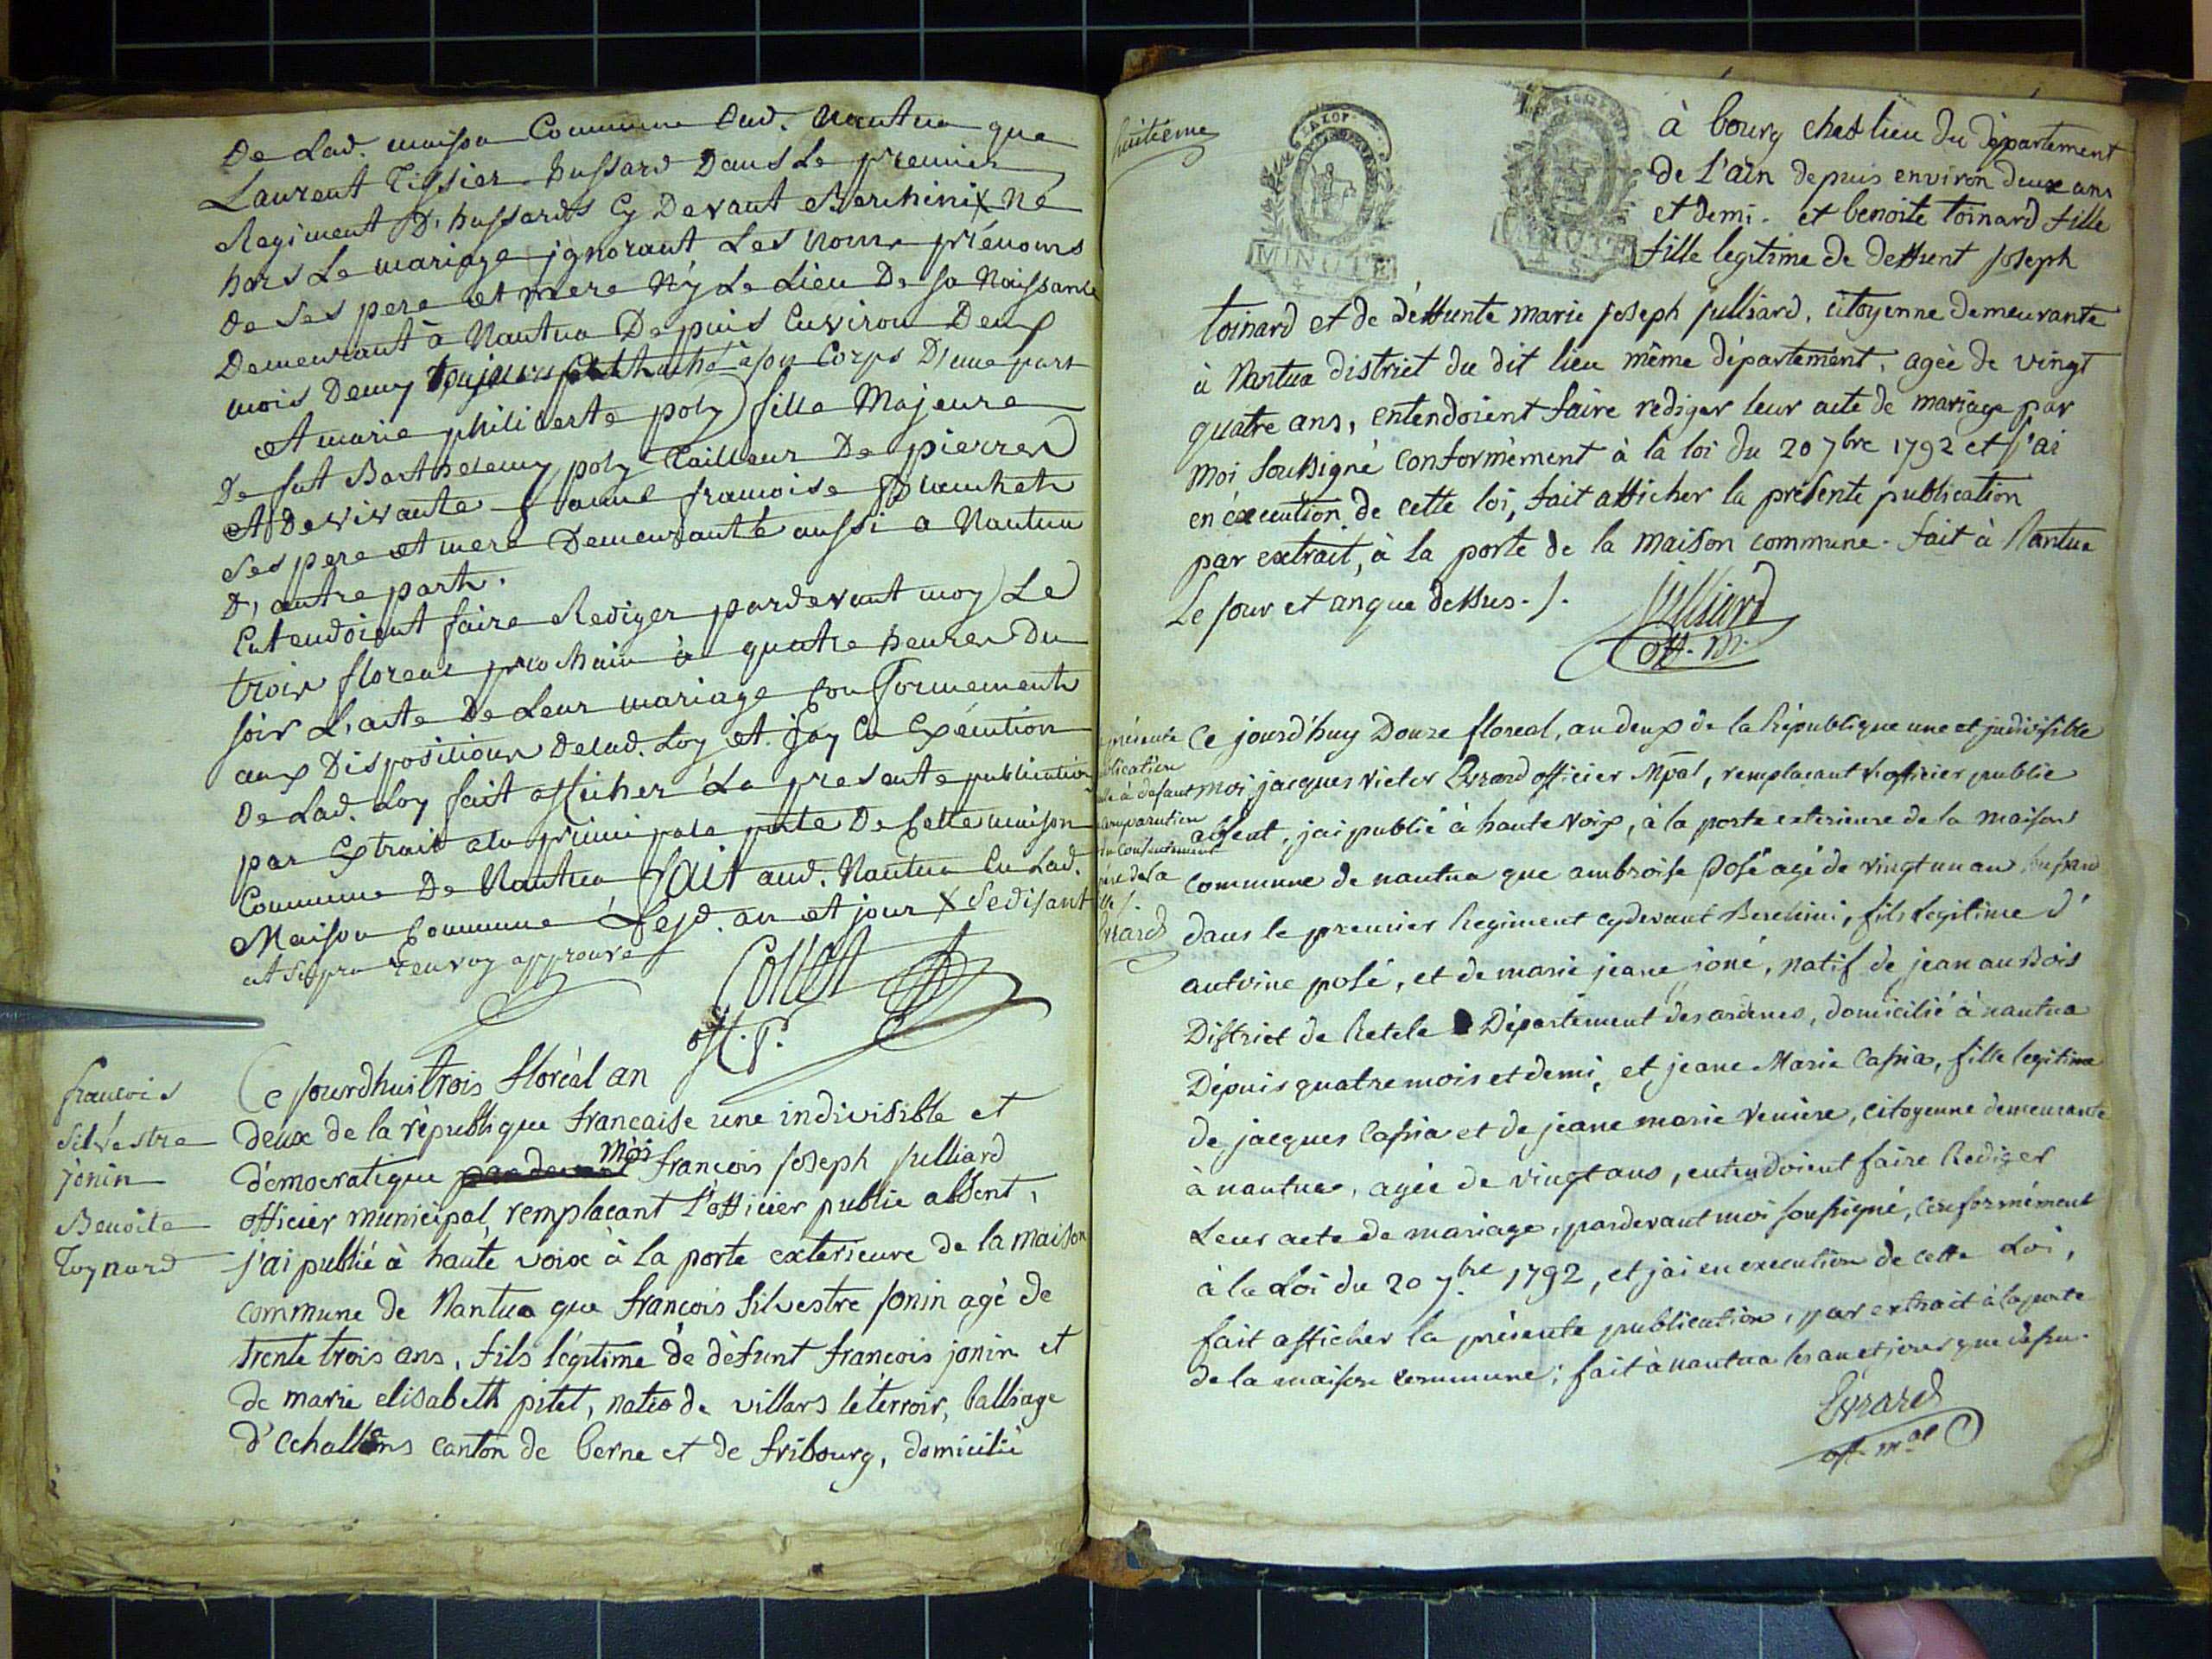 De Lad. maison Commune Aud. Nantua que
Laurent Tissier hussard Dans Le premier
Regiment D'hussards Cy Devant Berchini X Né
hors Le mariage ignorant Les Noms prénoms
de Ses pere et mere N'y Le Lieu De sa Naissance
Demeurant à Nantua Depuis Environ Deux
mois Demy toujours attaché à son Corps D'une part
et marie philiberte poly fille Majeure
De fut Barthelemy poly Tailleur De pierres
et De vivante françoise
Ses pere et mere Demeurante aussi a Nantua
D'autre part.
Entendoient faire Rediger pardevant moy Le
trois floreal prochain à quatre heures Du
soir L'acte De Leur mariage Conformement
aux Dispositions Delad. Loy et jay En Exécution
De Lad. Loy fait afficher La presente publication
par Extrait a la principale porte De Cette maison
Commune De Nantua Fait aud. Nantua En Lad.
Maison Commune Lesd. an et jour X se disant
et Renvoy approuvé
Collet
off. p.
francois
Silvestre
jonin
Benoite
Toynard
Ce jourdhui trois floréal an
deux de la rèpublique francaise une indivisible et
démocratique moi françois joseph julliard
officier municipal, remplacant l'officier public absent,
j'ai publié à haute voix à la porte exterieure de la maison
commune de Nantua que françois silvestre jonin agé de
trente trois ans, fils légitime de dèfunt francois jonin et
de marie elisabeth pitet, natif de villars le terroir, balliage
d'echallens canton de berne et de fribourg, domicilié
huitieme
MINUTE
MINUTE
à bourg chef lieu du département
de l'ain depuis environ deux ans
et demi. et benoite toinard fille
fille legitime de deffunt joseph
toinard et de déffunte marie joseph julliard, citoyenne demeurante
à Nantua district du dit lieu même département, agée de vingt
quatre ans, entendoient faire rediger leur acte de mariage par
moi soussigné conformément à la loi du 20 7bre 1792 et j'ai
en éxecution de cette loi, fait afficher la présente publication
par extrait, à la porte de la maison commune. fait à Nantua
Le jour et an que dessus. /.
julliard
off. m.
présente
publication
à defaut
comparution
du consentement
de la
Evrard
Ce jourd'huy Douze floreal, an deux de la République une et indivisible
moi jacques victor Evrard officier Mpal, remplacant l'officier public
absent, j'ai publié à haute voix, à la porte exterieure de la maison
commune de nantua que ambroise Posé agé de vingt un an hussard
dans le premier Regiment cydevant Berchini, fils legitime d'
antoine posé, et de marie jeane joné, natif de jean au Bois
District de Retele Département des ardenes, domicilié à nantua
Dépuis quatre mois et demi, et jeane Marie Cassia, fille legitime
de jacques Cassia et de jeane marie Veniere, citoyenne demeurante
à nantua, agée de vingt ans, entendoient faire Rediger
Leur acte de mariage, pardevant moi soussigné, conformément
à la Loi du 20 7.bre 1792, et j'ai en execution de cette Loi,
fait afficher la présente publication, par extrait à la porte
de la maison commune; fait à nantua les an et jour que dessu.
Evrard
off. m.al